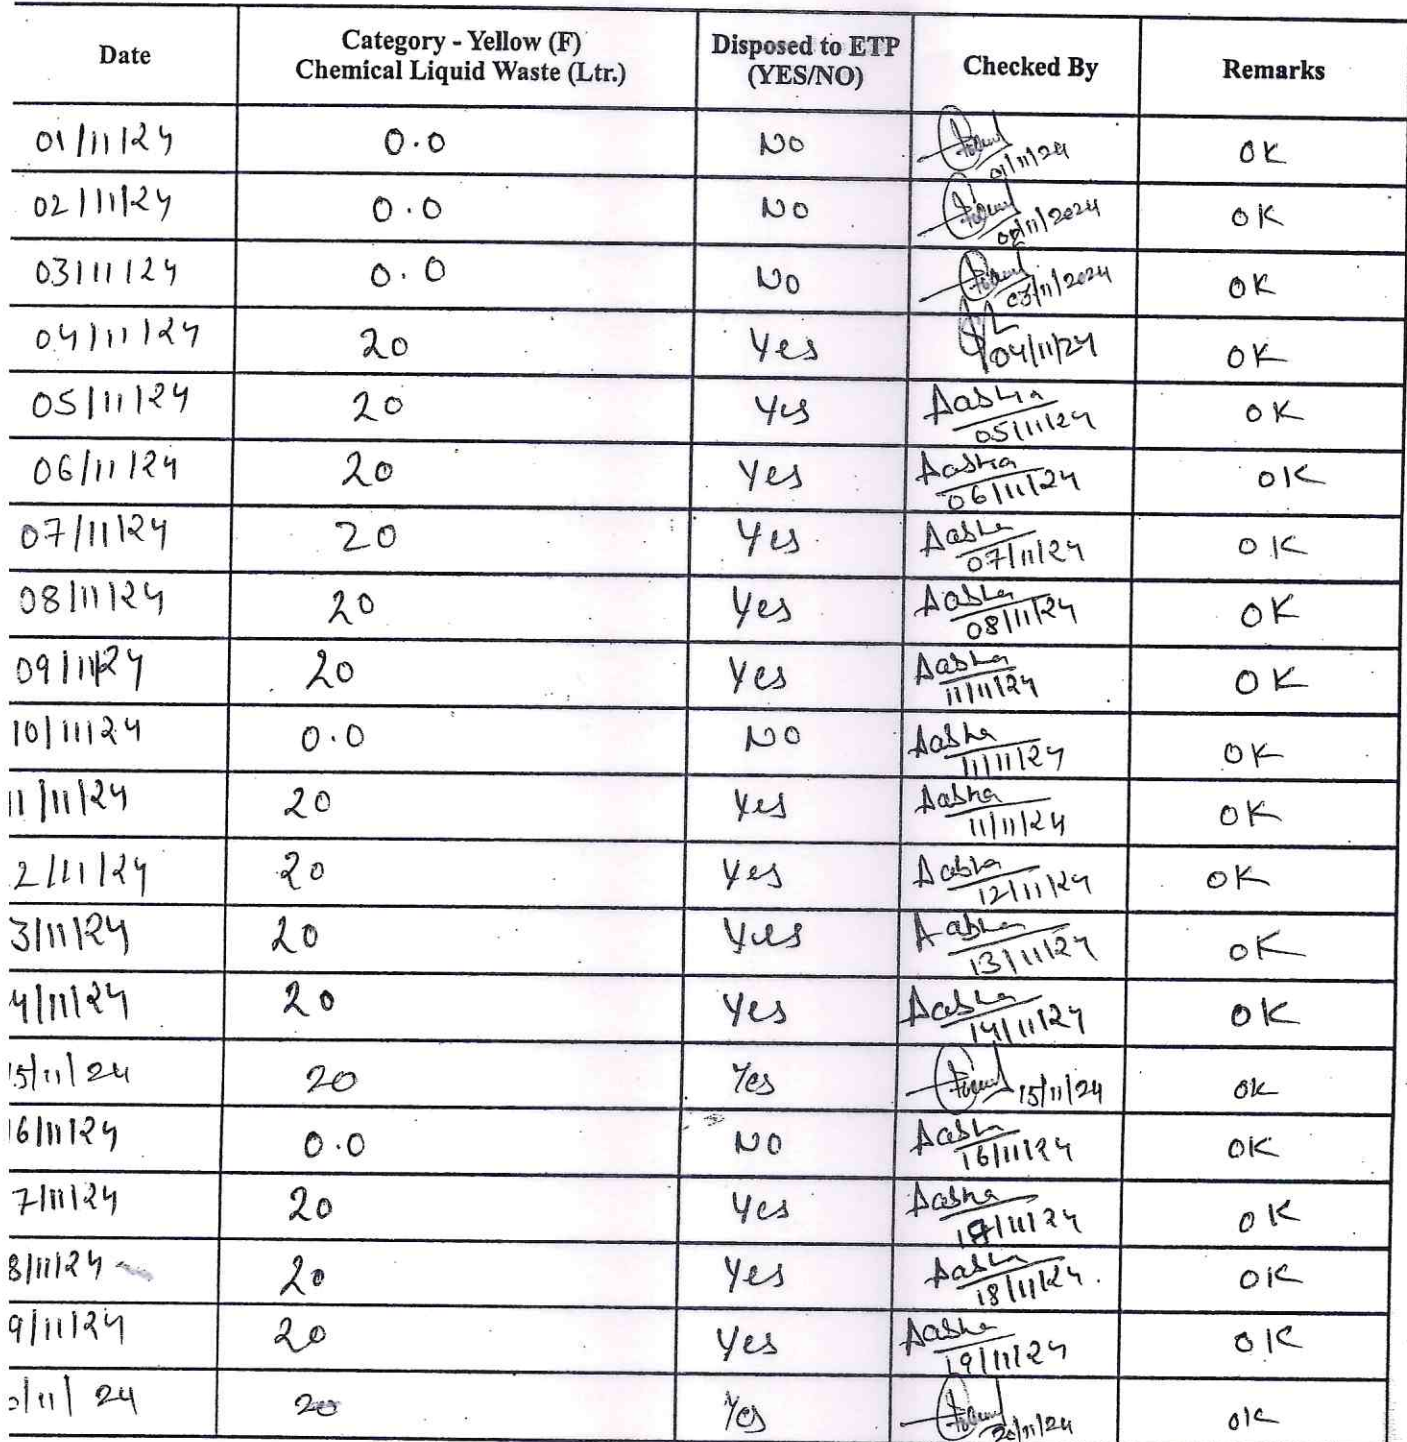 Date Category - Yellow (F) Chemical Liquid Waste (Ltr.) Disposed to ETP (YES/NO) Checked By Remarks
01/11/24 0.0 No 01/11/24 OK
02/11/24 0.0 No 02/11/2024 OK
03/11/24 0.0 No 03/11/2024 OK
04/11/24 20 Yes 04/11/24 OK
05/11/24 20 Yes Aasha 05/11/24 OK
06/11/24 20 Yes Aasha 06/11/24 OK
07/11/24 20 Yes Aasha 07/11/24 OK
08/11/24 20 Yes Aasha 08/11/24 OK
09/11/24 20 Yes Aasha 11/11/24 OK
10/11/24 0.0 NO Aasha 11/11/24 OK
11/11/24 20 Yes Aasha 11/11/24 OK
2/11/24 20 Yes Aasha 12/11/24 OK
3/11/24 20 Yes Aasha 13/11/24 OK
4/11/24 20 Yes Aasha 14/11/24 OK
15/11/24 20 Yes 15/11/24 Ok
16/11/24 0.0 NO Aasha 16/11/24 OK
7/11/24 20 Yes Aasha 17/11/24 OK
8/11/24 20 Yes Aasha 18/11/24. OK
9/11/24 20 Yes Aasha 19/11/24 OK
0/11/24 20 Yes 20/11/24 ok